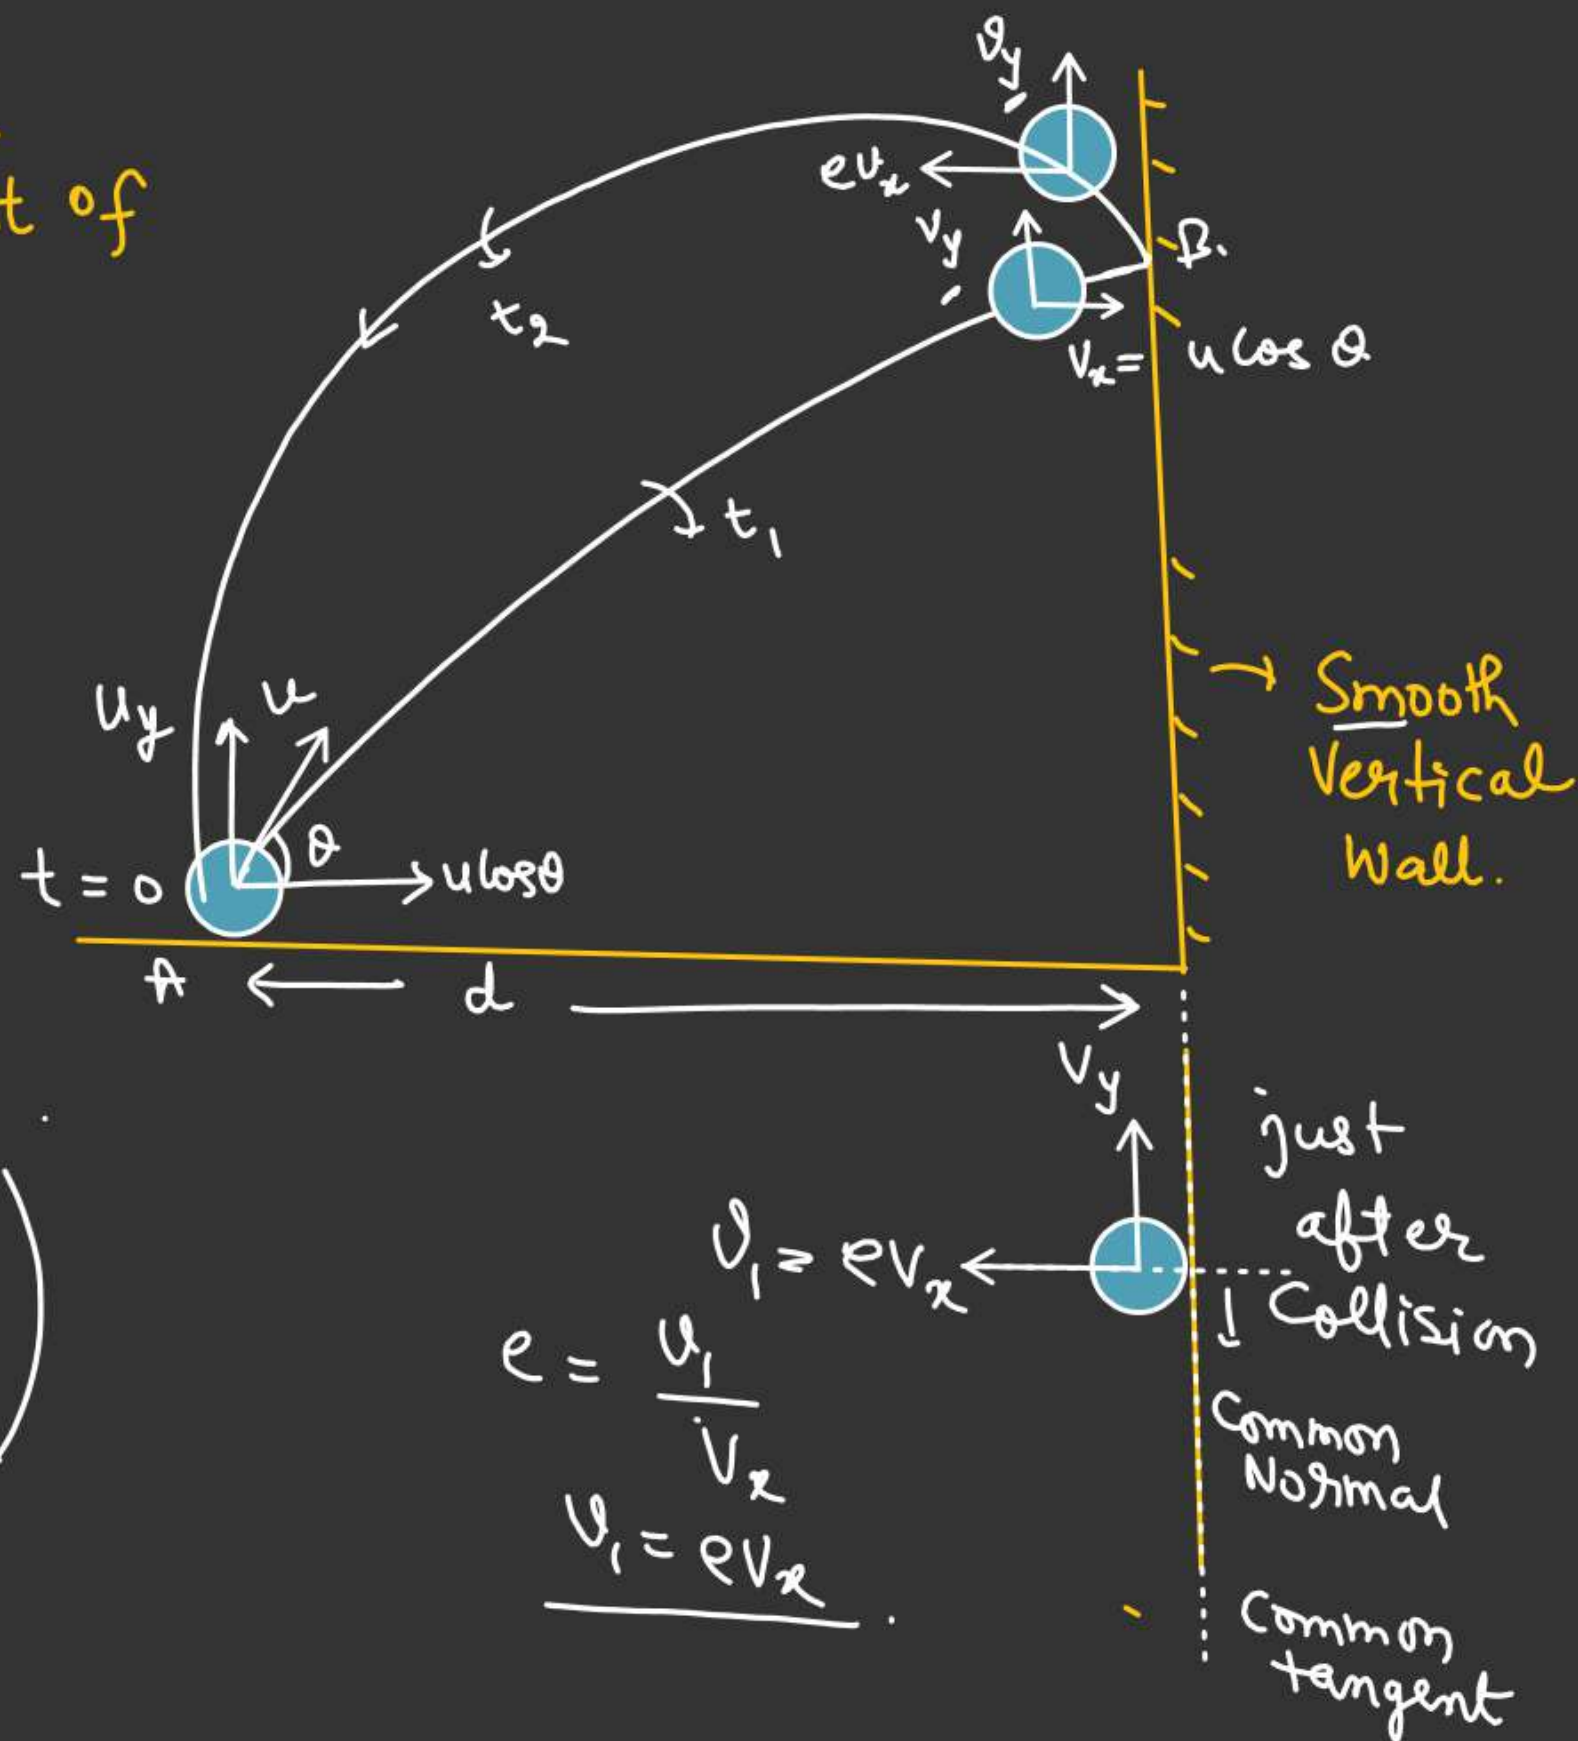 t of
vy
evx
vy
B.
t2
vx = u cos θ
t1
uy
u
θ
t = 0
u cosθ
→ Smooth
Vertical
Wall.
A
d
Vy
just
after
Collision
v1 = evx
e = v1/vx
Common
Normal
v1 = evx.
Common
tangent